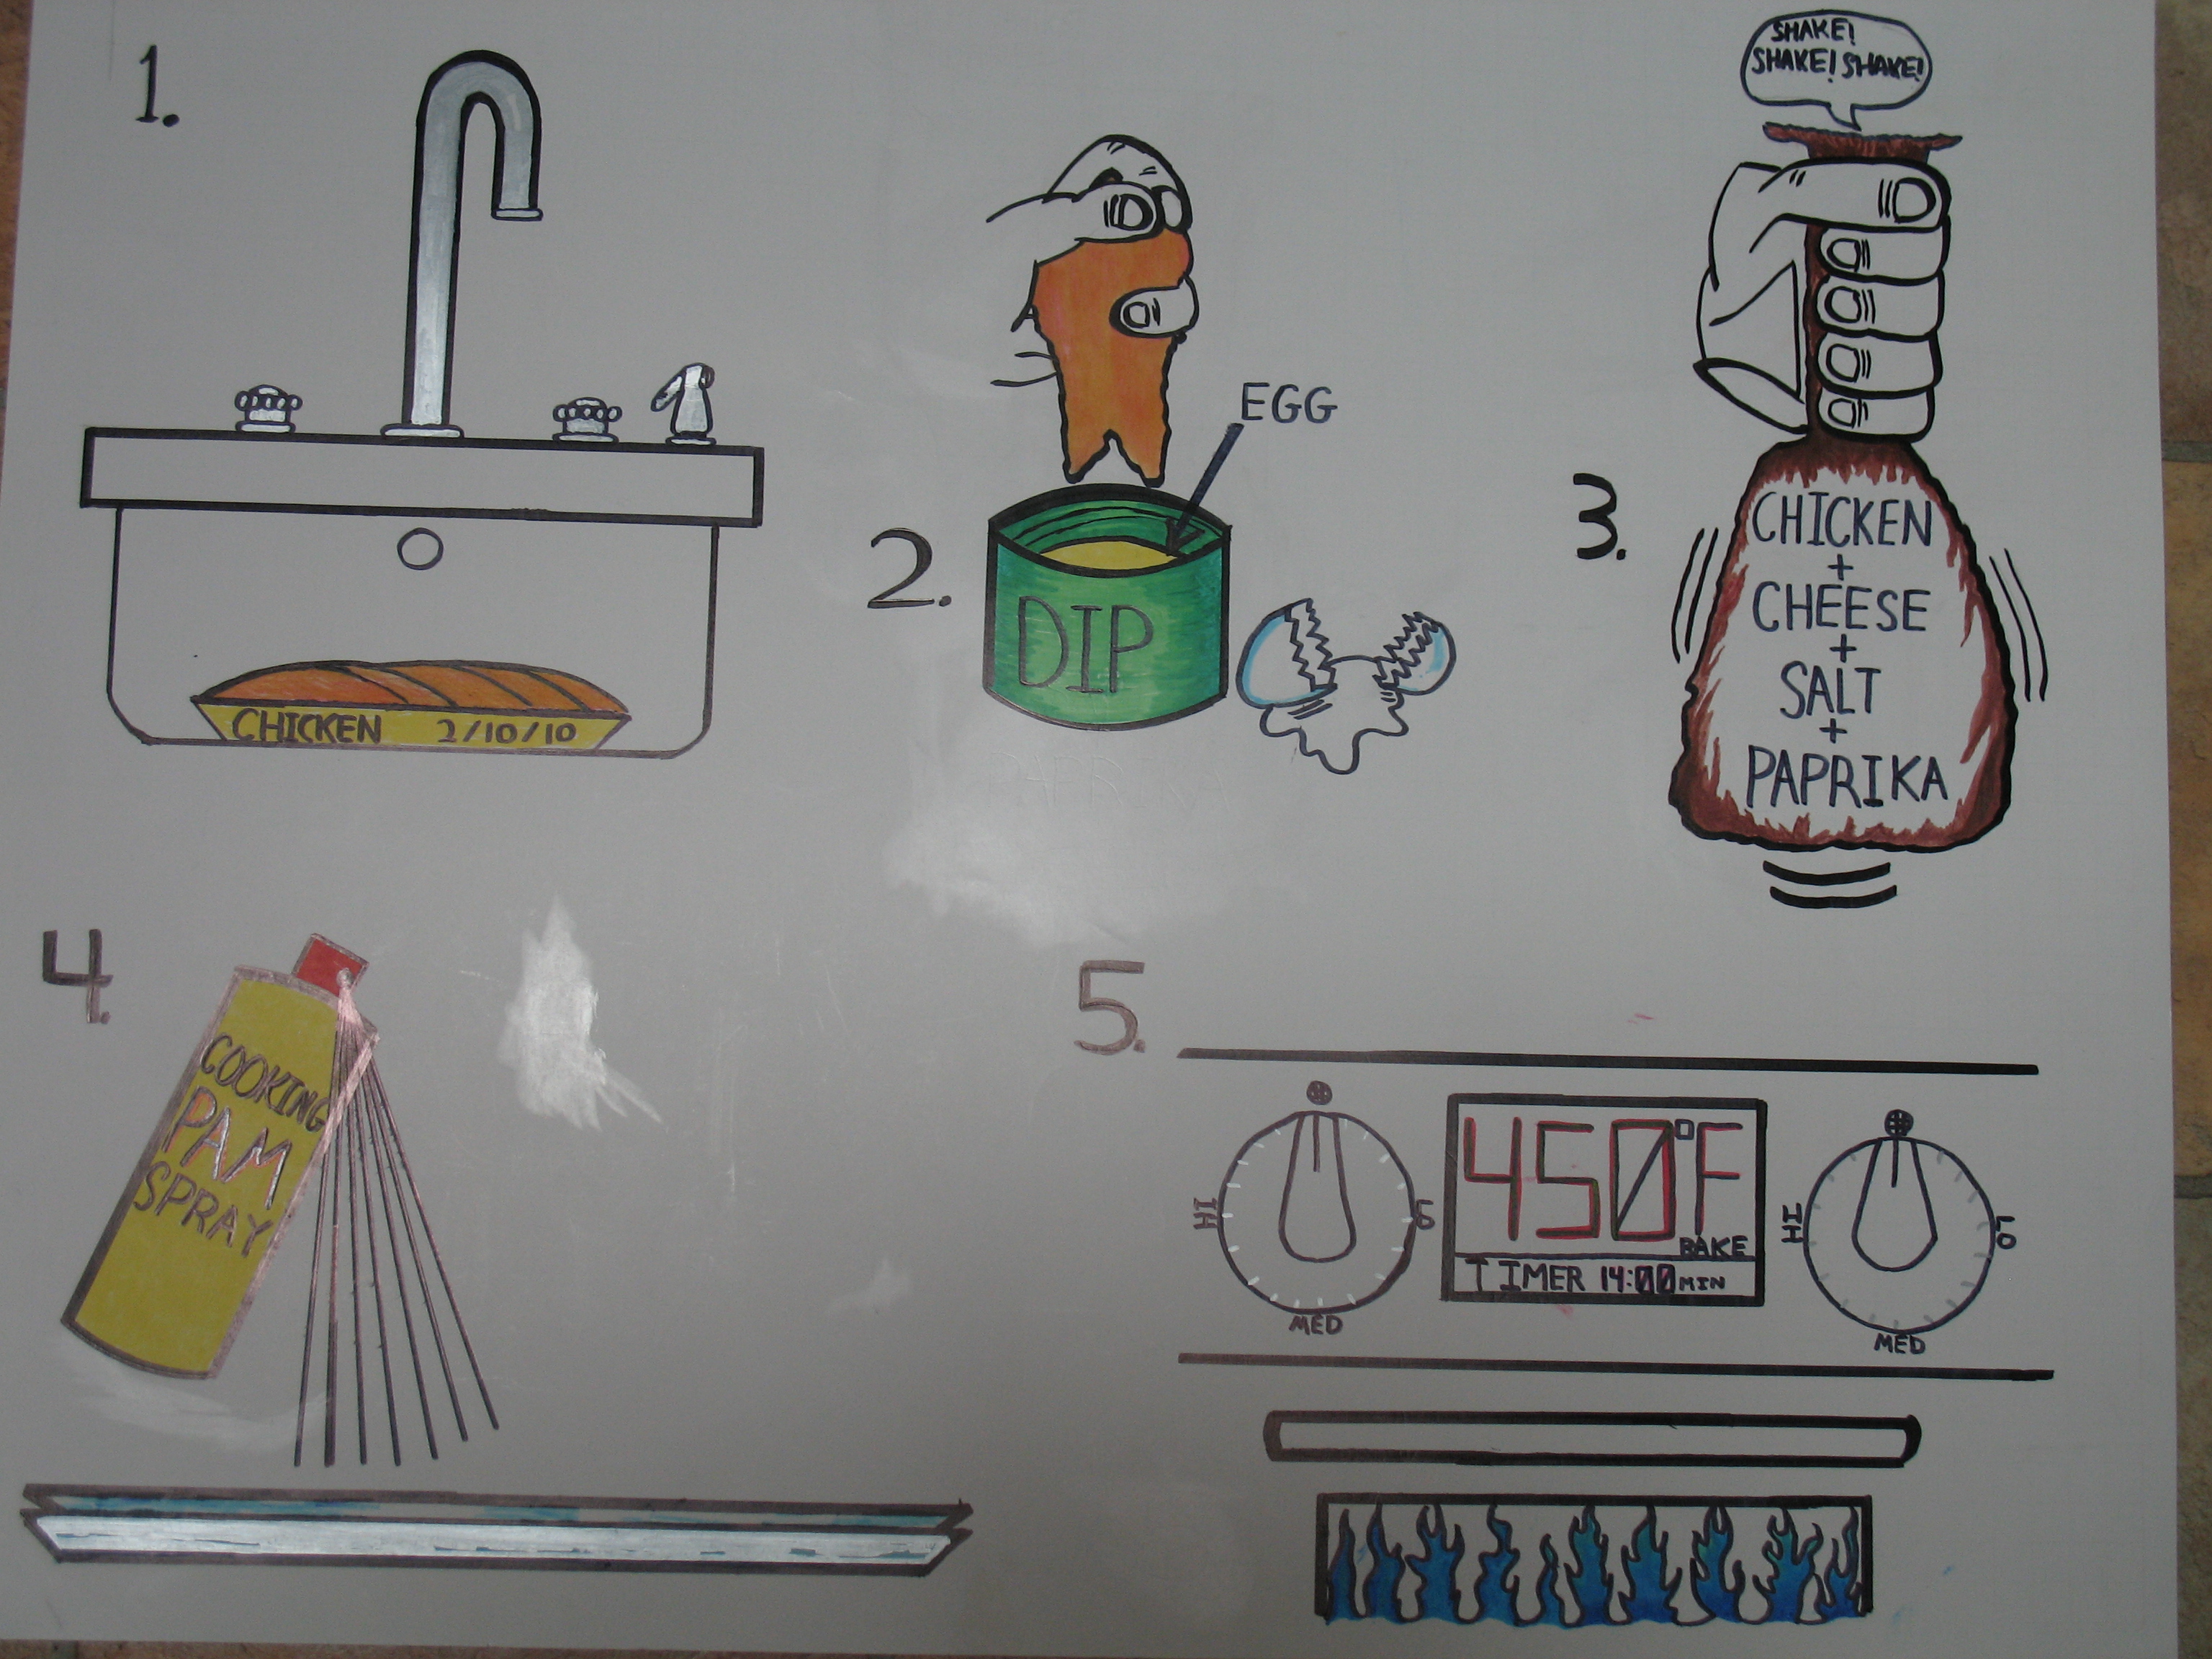 1.
CHICKEN 2/10/10
2.
EGG
DIP
PAPRIKA
3.
SHAKE!
SHAKE! SHAKE!
CHICKEN
+
CHEESE
+
SALT
+
PAPRIKA
4.
COOKING
PAM
SPRAY
5.
HI
LO
MED
450°F
BAKE
TIMER 14:00 MIN
HI
LO
MED